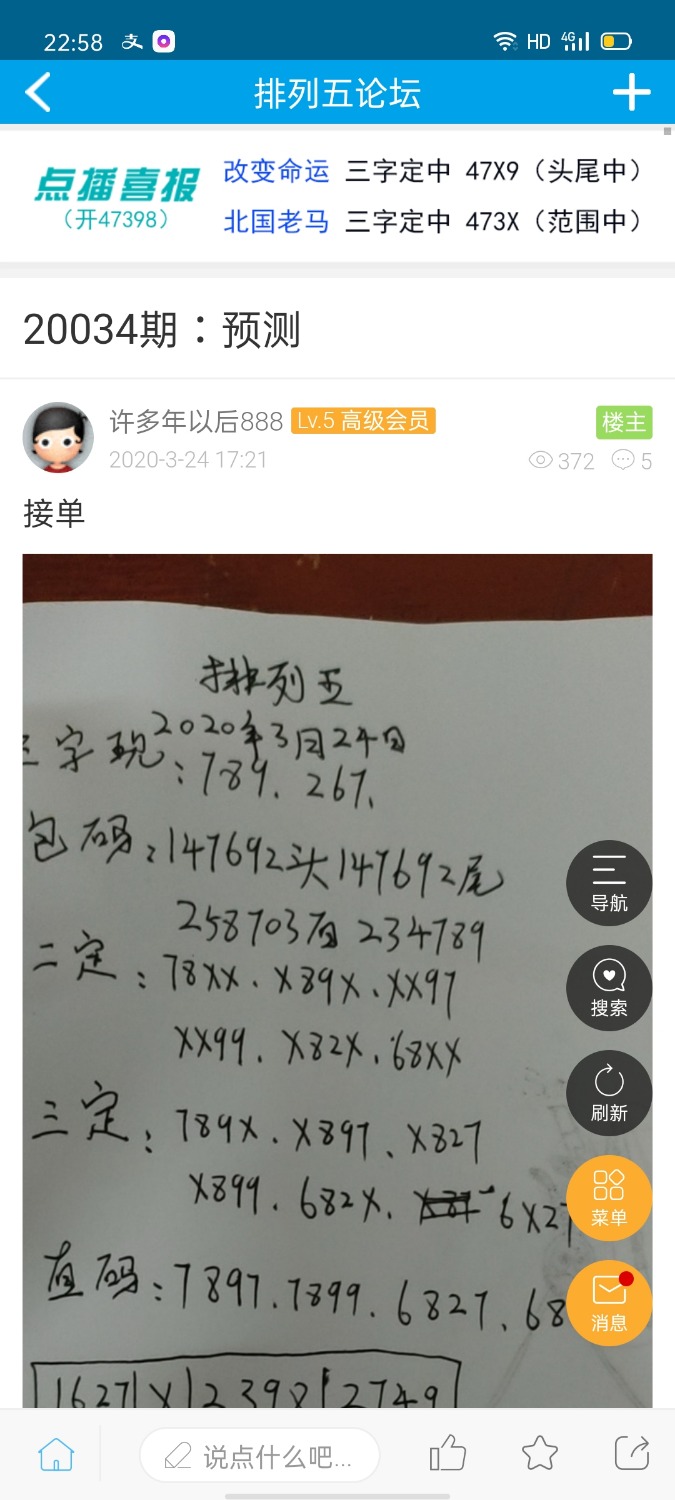 22:58 HD 4G
排列五论坛
点播喜报
（开47398）
改变命运 三字定中 47X9（头尾中）
北国老马 三字定中 473X（范围中）
20034期：预测
许多年以后888 Lv.5 高级会员 楼主
2020-3-24 17:21 372 5
接单
排列五
2020年3月24日
三字现：789. 267.
包码：147692头147692尾
258703百 234789
二定：78XX. X89X. XX97
XX99. X82X. 68XX
三定：789X. X897. X827
X899. 682X. 6X27
直码：7897. 7899. 6827. 68
导航
搜索
刷新
菜单
消息
说点什么吧...